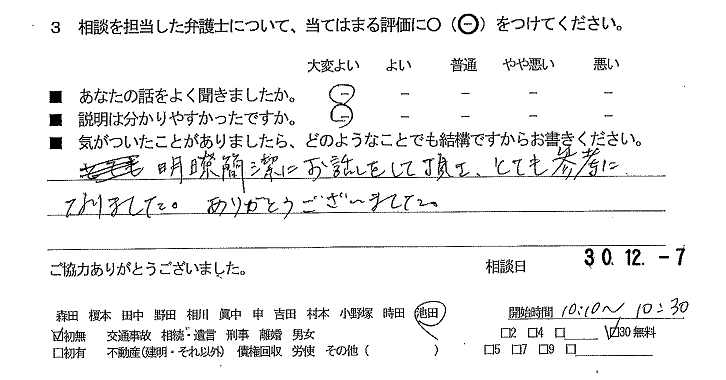 3 相談を担当した弁護士について、当てはまる評価に〇（⊖）をつけてください。
大変よい よい 普通 やや悪い 悪い
■ あなたの話をよく聞きましたか。 － － － － －
■ 説明は分かりやすかったですか。 － － － － －
■ 気がついたことがありましたら、どのようなことでも結構ですからお書きください。
明瞭簡潔にお話しをして頂き、とても参考に
なりました。ありがとうございました。
ご協力ありがとうございました。 相談日 30.12.-7
森田 榎本 田中 野田 相川 眞中 申 吉田 村本 小野塚 時田 池田 開始時間 10:10〜10:30
☑初無 交通事故 相続・遺言 刑事 離婚 男女 □2 □4 □ ☑30無料
□初有 不動産(建明・それ以外) 債権回収 労使 その他( ) □5 □7 □9 □